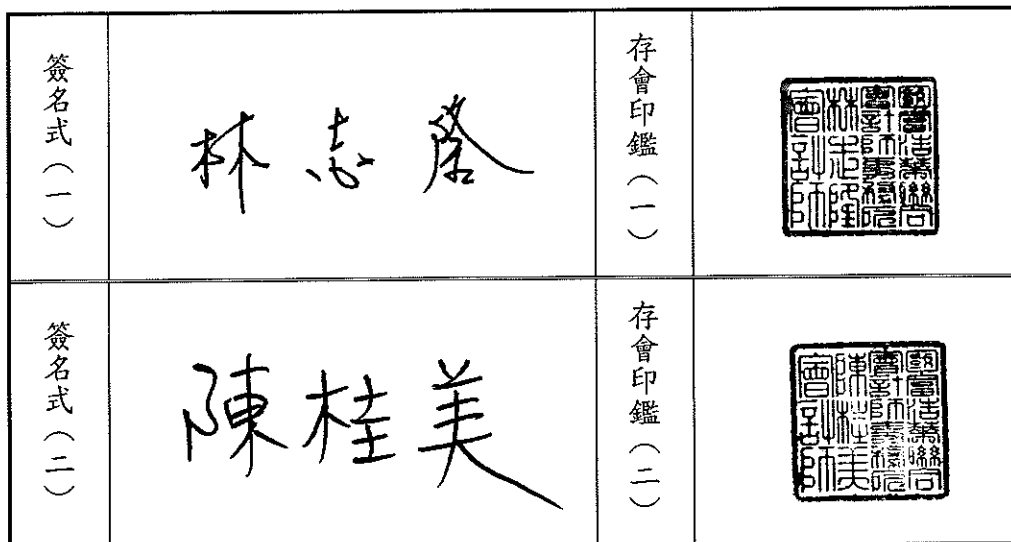 簽名式（一）
林志隆
存會印鑑（一）
國富浩華聯合
會計師事務所
林志隆
會計師
簽名式（二）
陳桂美
存會印鑑（二）
國富浩華聯合
會計師事務所
陳桂美
會計師